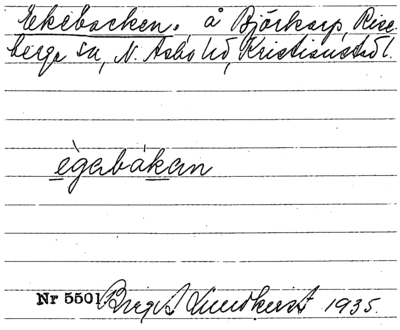 Ekebacken, å Björkarp, Rise-
berga sn, N. Asbo hd, Kristianst. l.
ègabákan
Nr 5501 Birgit Lundkvist 1935.